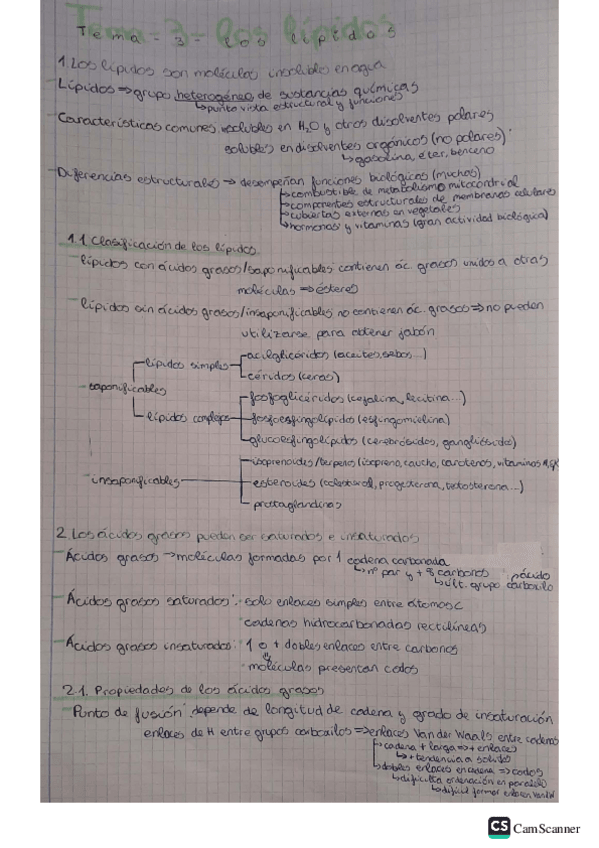 Tema - 3 - los lípidos
1. Los lípidos son moléculas insoluble en agua
Lípidos ⇒ grupo heterogéneo de sustancias químicas
↳ punto vista estructural y funciones
Características comunes: insolubles en H2O y otros disolventes polares
solubles en disolventes orgánicos (no polares)
↳ gasolina, éter, benceno
Diferencias estructurales → desempeñan funciones biológicas (muchos)
↳ combustible de metabolismo mitocondrial
↳ componentes estructurales de membranas celulares
↳ cubiertas externas en vegetales
↳ hormonas y vitaminas (gran actividad biológica)
1.1 Clasificación de los lípidos
- lípidos con ácidos grasos/saponificables contienen ác. grasos unidos a otras
moléculas ⇒ ésteres
- lípidos sin ácidos grasos/insaponificables no contienen ác. grasos ⇒ no pueden
utilizarse para obtener jabón
- saponificables
lípidos simples
acilglicéridos (aceites, sebos...)
céridos (ceras)
lípidos complejos
fosfoglicéridos (cefalina, lecitina...)
fosfoesfingolípidos (esfingomielina)
glucoesfingolípidos (cerebrósidos, gangliósido)
- insaponificables
isoprenoides/terpenos (isopreno, caucho, carotenos, vitaminas A,E,K
esteroides (colesterol, progesterona, testosterona...)
prostaglandinas
2. Los ácidos grasos pueden ser saturados e insaturados
Ácidos grasos → moléculas formadas por 1 cadena carbonada
↳ nº par y + 8 carbonos
↳ últ. grupo carboxilo
Ácidos grasos saturados: · solo enlaces simples entre átomos C
· cadenas hidrocarbonadas rectilíneas
Ácidos grasos insaturados: · 1 o + dobles enlaces entre carbonos
· moléculas presentan codos
2.1. Propiedades de los ácidos grasos
Punto de fusión: depende de longitud de cadena y grado de insaturación
enlaces de H entre grupos carboxilos ⇒ enlaces Van der Waals entre cadenas
↳ cadena + larga ⇒ + enlaces
↳ + tendencia a sólidos
↳ dobles enlaces en cadena ⇒ codos
↳ dificulta ordenación en paralelo
↳ dificil formar enlaces
CS CamScanner